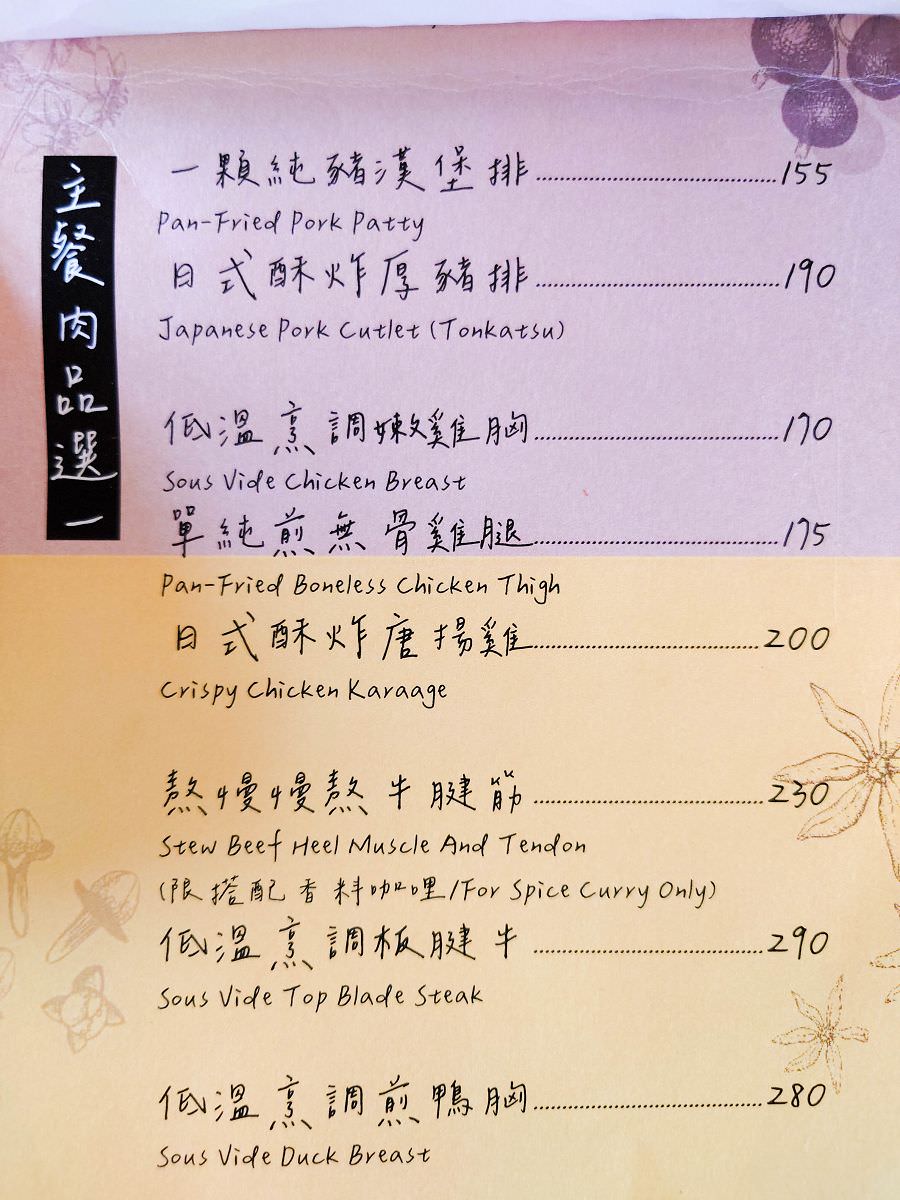 主餐肉品選一
一顆純豬漢堡排...............155
Pan-Fried Pork Patty
日式酥炸厚豬排...............190
Japanese Pork Cutlet (Tonkatsu)
低溫烹調嫩雞胸...............170
Sous Vide Chicken Breast
單純煎無骨雞腿...............175
Pan-Fried Boneless Chicken Thigh
日式酥炸唐揚雞...............200
Crispy Chicken Karaage
熬慢慢熬牛腱筋...............230
Stew Beef Heel Muscle And Tendon
(限搭配香料咖哩/For Spice Curry Only)
低溫烹調板腱牛...............290
Sous Vide Top Blade Steak
低溫烹調煎鴨胸...............280
Sous Vide Duck Breast